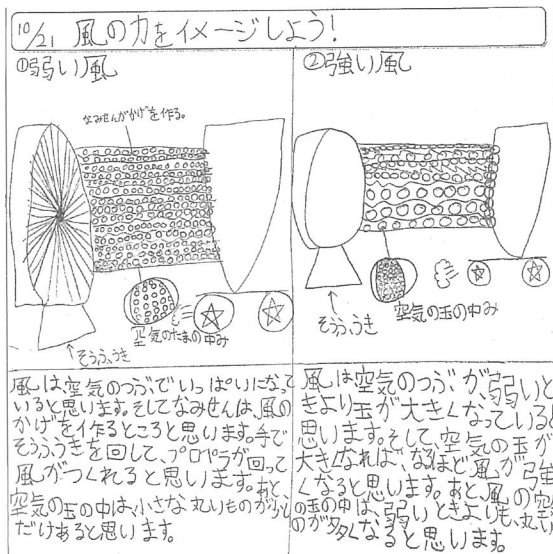 10/21 風の力をイメージしよう!
①弱い風
なみせんがかげを作る。
空気のたまの中み
↑そうふうき
風は空気のつぶでいっぱいになって
いると思います。そしてなみせんは、風の
かげを作るところと思います。手で
そうふうきを回して、プロペラが回って
風がつくれると思います。あと、
空気の玉の中は、小さな丸いものが少し
だけあると思います。
②強い風
そうふうき
空気の玉の中み
風は空気のつぶが、弱いと
きより玉が大きくなっていると
思います。そして、空気の玉が
大きくなれば、なるほど風が強
くなると思います。あと、風の空気
の玉の中は、弱いときよりも、丸い
のが多くなると思います。